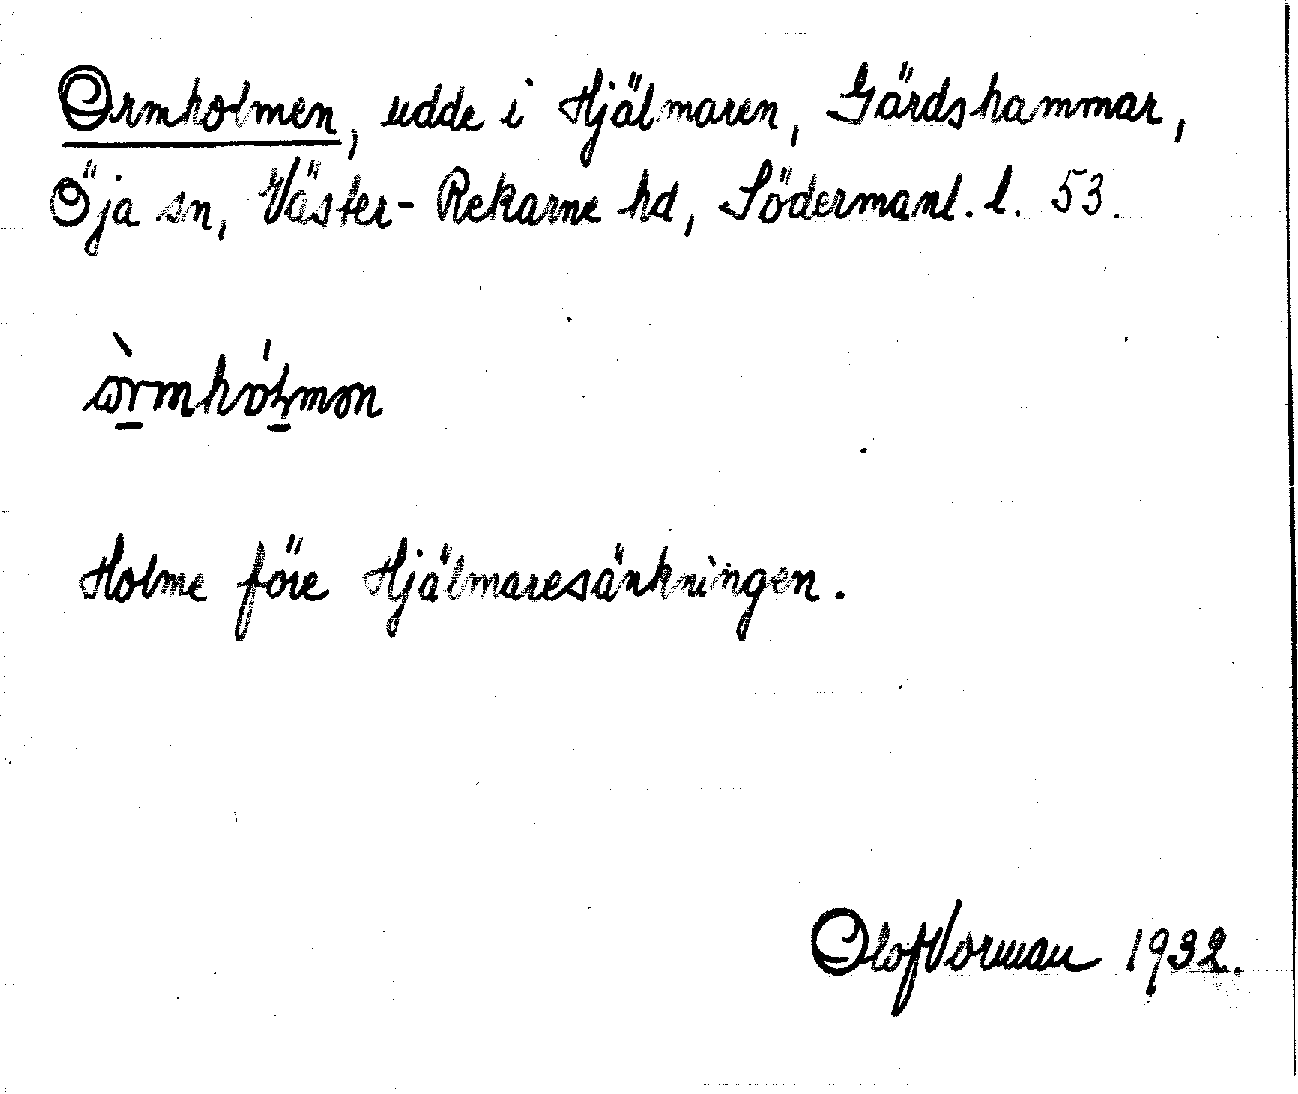 Ormholmen, udde i Hjälmaren, Gärdshammar,
Öja sn, Väster-Rekarne hd, Södermanl. l. 53.
Holme före Hjälmaresänkningen.
Olof Vorman 1932.